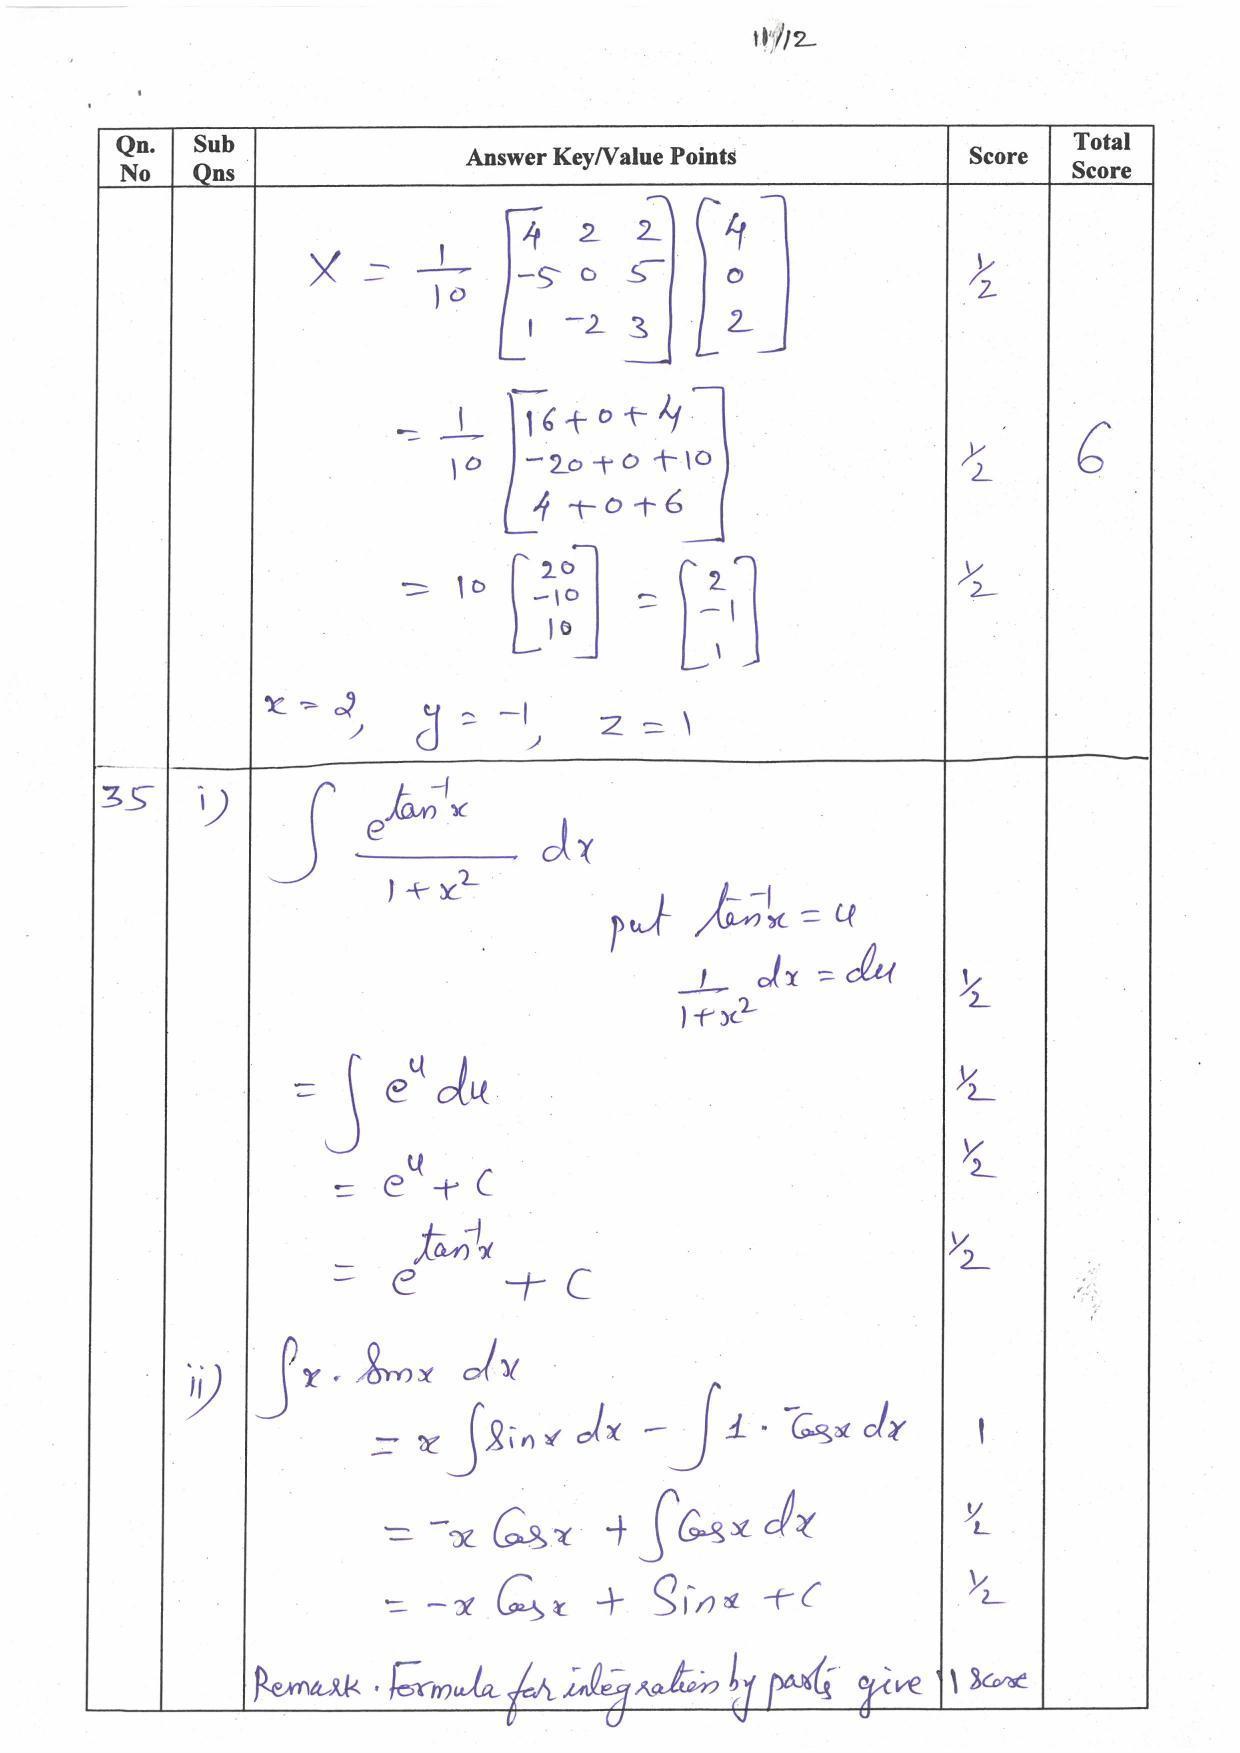 11/12
Qn. No | Sub Qns | Answer Key/Value Points | Score | Total Score
X = 1/10 [4 2 2; -5 0 5; 1 -2 3] [4; 0; 2] ½
= 1/10 [16+0+4; -20+0+10; 4+0+6] ½ 6
= 10 [20; -10; 10] = [2; -1; 1] ½
x = 2, y = -1, z = 1
35 i) ∫ e^(tan⁻¹x) / (1+x²) dx
put tan⁻¹x = u
1/(1+x²) dx = du ½
= ∫ e^u du ½
= e^u + C ½
= e^(tan⁻¹x) + C ½
ii) ∫ x . Sinx dx
= x ∫ Sinx dx - ∫ 1 . -Cosx dx 1
= -x Cosx + ∫ Cosx dx ½
= -x Cosx + Sinx + C ½
Remark . Formula for integration by parts give 1 score